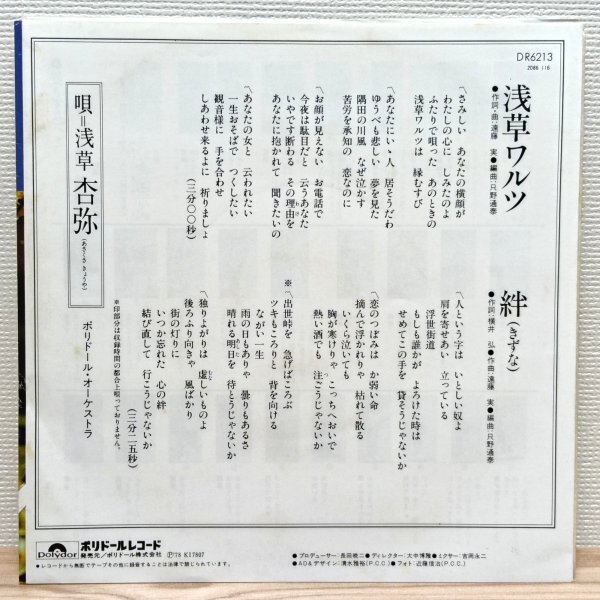 DR6213
2086 116
浅草ワルツ
●作詞・曲:遠藤 実●編曲:只野通泰
さみしい あなたの横顔が
わたしの心に しみたのよ
ふたりで唄った あのときの
浅草ワルツは 縁むすび
あなたにいゝ人 居そうだわ
ゆうべも悲しい 夢を見た
隅田の川風 なぜ泣かす
苦労を承知の 恋なのに
お顔が見えない お電話で
今夜は駄目だと 云うあなた
いやです断わる その理由を
あなたに抱かれて 聞きたいの
あなたの女と 云われたい
一生おそばで つくしたい
観音様に 手を合わせ
しあわせ来るよに 祈りましょ
(三分〇〇秒)
絆(きずな)
●作詞:横井 弘●作曲:遠藤 実●編曲:只野通泰
人という字は いとしい奴よ
肩を寄せあい 立っている
浮世街道
もしも誰かが よろけた時は
せめてこの手を 貸そうじゃないか
恋のつぼみは か弱い命
摘んで浮かれりゃ 枯れて散る
いくら泣いても
胸が寒けりゃ こっちへおいで
熱い酒でも 注ごうじゃないか
※出世峠を 急げばころぶ
ツキもころりと 背を向ける
ながい一生
雨の日もありゃ 曇りもあるさ
晴れる明日を 待とうじゃないか
独りよがりは 虚しいものよ
後ろふり向きゃ 風ばかり
街の灯りに
いつか忘れた 心の絆
結び直して 行こうじゃないか
(三分二五秒)
※印部分は収録時間の都合上唄っておりません。
唄=浅草杏弥
(あさくさ きょうや)
ポリドール・オーケストラ
Polydor
ポリドールレコード
発売元/ポリドール株式会社
Ⓟ'78 K17807
●レコードから無断でテープその他に録音することは法律で禁じられています。
●プロデューサー:長田暁二●ディレクター:大中博雅●ミクサー:吉岡永二
●AD&デザイン:清水雅裕(P.C.C.)●フォト:近藤信治(P.C.C.)